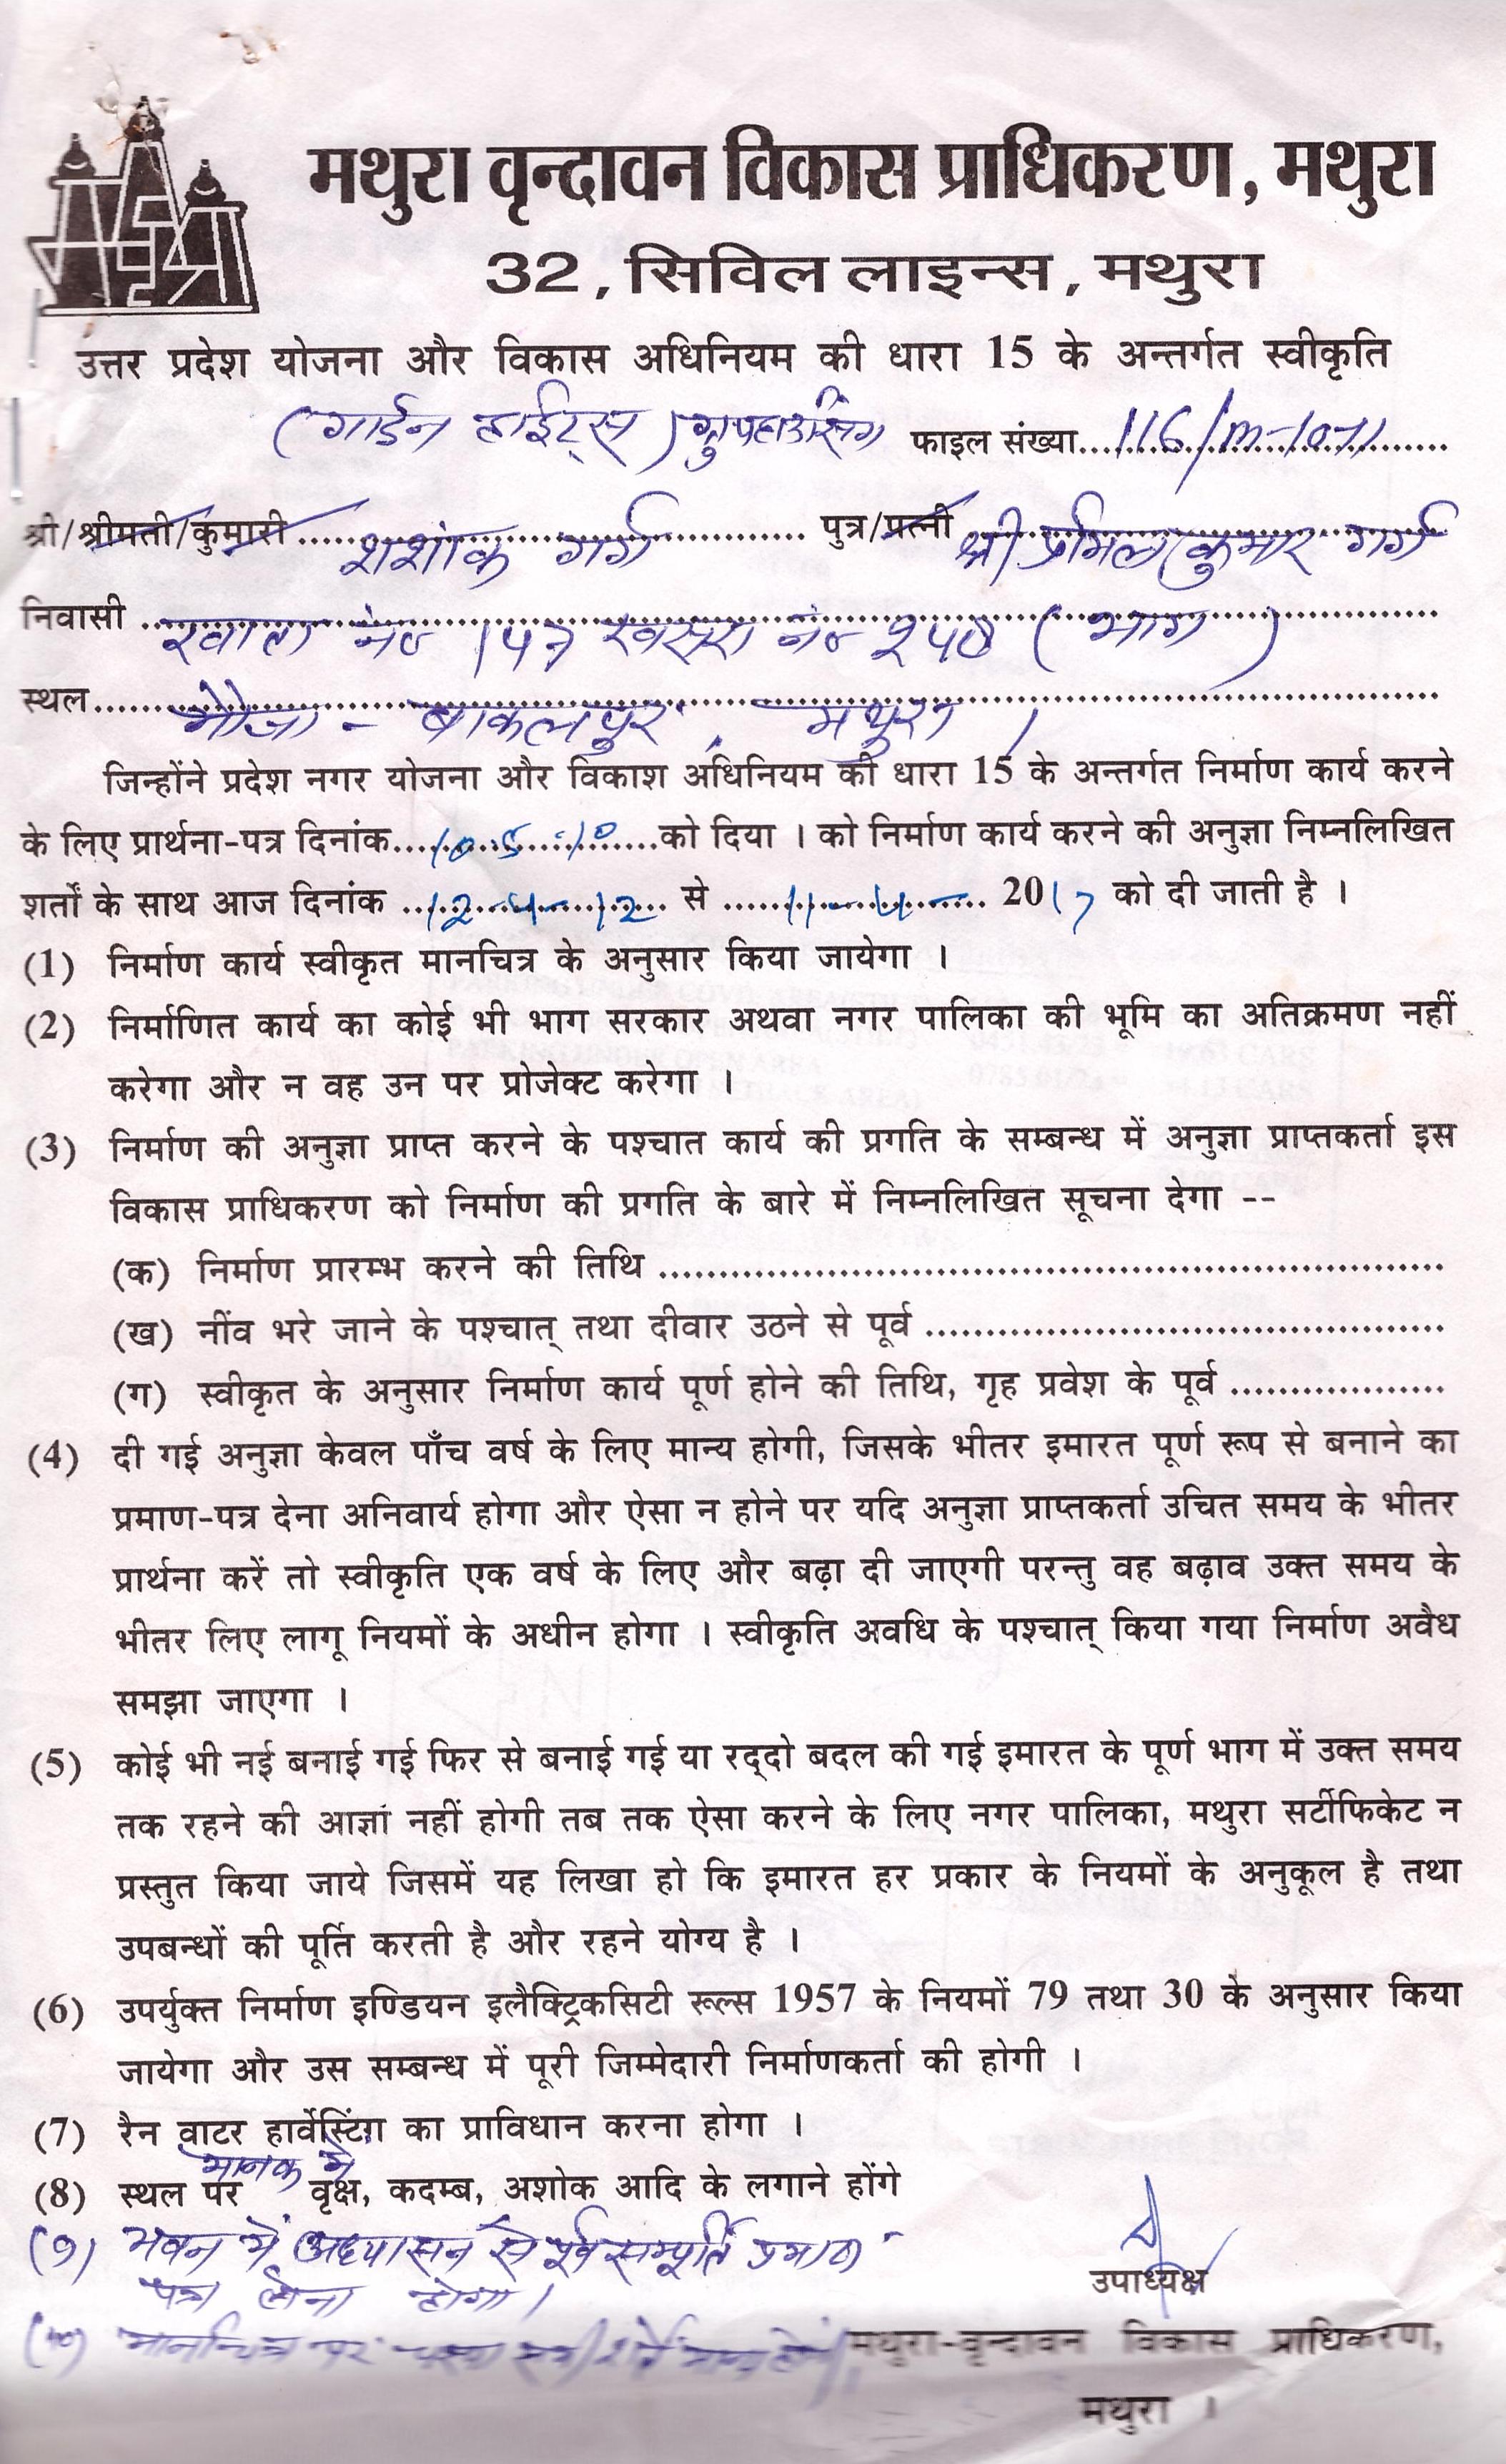 मथुरा वृन्दावन विकास प्राधिकरण, मथुरा
32, सिविल लाइन्स, मथुरा
उत्तर प्रदेश योजना और विकास अधिनियम की धारा 15 के अन्तर्गत स्वीकृति
(गार्डन हाईट्स) ग्रुपहाउसिंग फाइल संख्या....116/m-10-11........
श्री/श्रीमती/कुमारी.....शशांक गर्ग..... पुत्र/पत्नी श्री कुमार गर्ग
निवासी ..... नं० खसरा नं० (भाग)
स्थल..... मौजा - बाकलपुर, मथुरा ।
जिन्होंने प्रदेश नगर योजना और विकाश अधिनियम की धारा 15 के अन्तर्गत निर्माण कार्य करने
के लिए प्रार्थना-पत्र दिनांक....10.5.10.....को दिया । को निर्माण कार्य करने की अनुज्ञा निम्नलिखित
शर्तों के साथ आज दिनांक ...12-4-12... से .....11-4-..... 2017 को दी जाती है ।
(1) निर्माण कार्य स्वीकृत मानचित्र के अनुसार किया जायेगा ।
(2) निर्माणित कार्य का कोई भी भाग सरकार अथवा नगर पालिका की भूमि का अतिक्रमण नहीं
करेगा और न वह उन पर प्रोजेक्ट करेगा ।
(3) निर्माण की अनुज्ञा प्राप्त करने के पश्चात कार्य की प्रगति के सम्बन्ध में अनुज्ञा प्राप्तकर्ता इस
विकास प्राधिकरण को निर्माण की प्रगति के बारे में निम्नलिखित सूचना देगा --
(क) निर्माण प्रारम्भ करने की तिथि ..........................................................
(ख) नींव भरे जाने के पश्चात् तथा दीवार उठने से पूर्व ..........................................
(ग) स्वीकृत के अनुसार निर्माण कार्य पूर्ण होने की तिथि, गृह प्रवेश के पूर्व ..................
(4) दी गई अनुज्ञा केवल पाँच वर्ष के लिए मान्य होगी, जिसके भीतर इमारत पूर्ण रूप से बनाने का
प्रमाण-पत्र देना अनिवार्य होगा और ऐसा न होने पर यदि अनुज्ञा प्राप्तकर्ता उचित समय के भीतर
प्रार्थना करें तो स्वीकृति एक वर्ष के लिए और बढ़ा दी जाएगी परन्तु वह बढ़ाव उक्त समय के
भीतर लिए लागू नियमों के अधीन होगा । स्वीकृति अवधि के पश्चात् किया गया निर्माण अवैध
समझा जाएगा ।
(5) कोई भी नई बनाई गई फिर से बनाई गई या रद्दो बदल की गई इमारत के पूर्ण भाग में उक्त समय
तक रहने की आज्ञा नहीं होगी तब तक ऐसा करने के लिए नगर पालिका, मथुरा सर्टीफिकेट न
प्रस्तुत किया जाये जिसमें यह लिखा हो कि इमारत हर प्रकार के नियमों के अनुकूल है तथा
उपबन्धों की पूर्ति करती है और रहने योग्य है ।
(6) उपर्युक्त निर्माण इण्डियन इलैक्ट्रिकसिटी रूल्स 1957 के नियमों 79 तथा 30 के अनुसार किया
जायेगा और उस सम्बन्ध में पूरी जिम्मेदारी निर्माणकर्ता की होगी ।
(7) रैन वाटर हार्वेस्टिंग का प्राविधान करना होगा ।
(8) स्थल पर मानक में वृक्ष, कदम्ब, अशोक आदि के लगाने होंगे
(9) भवन में अध्यासन से पूर्व सम्पूर्ति प्रमाण
पत्र लेना होगा।
(10) मानचित्र पर
उपाध्यक्ष
मथुरा-वृन्दावन विकास प्राधिकरण,
मथुरा ।